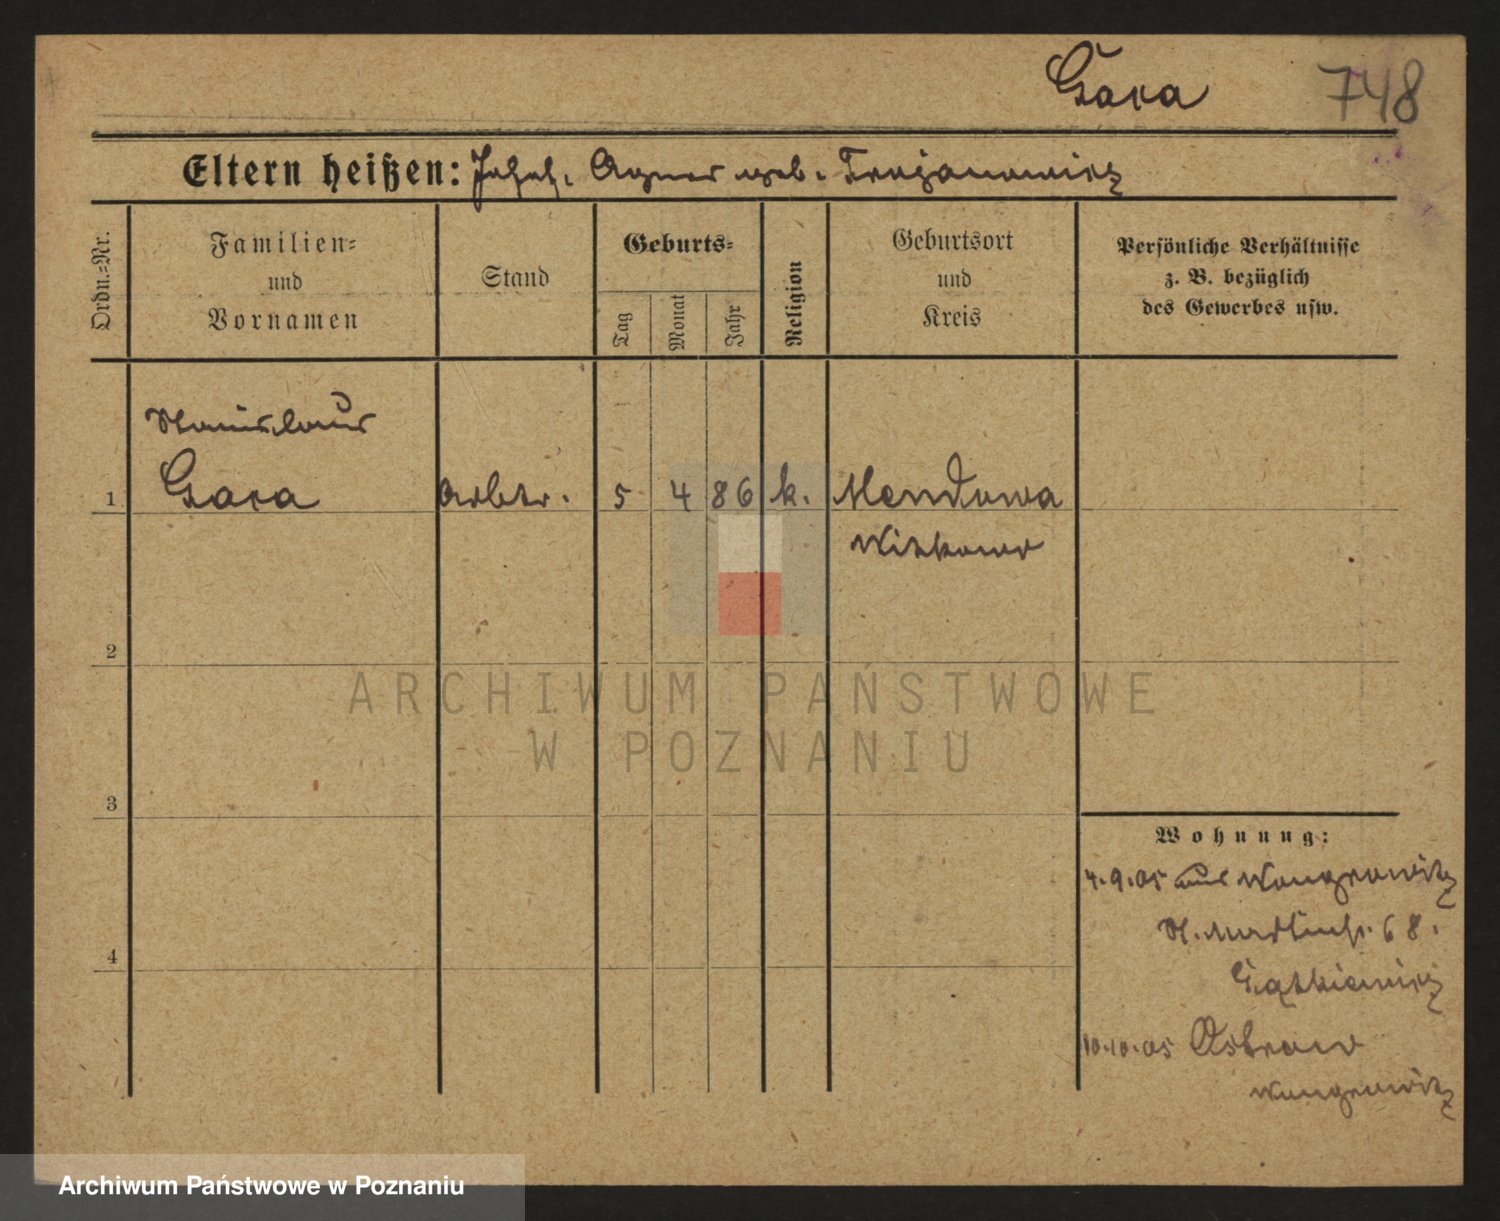 Gara 748
Eltern heißen: Joseph. Agnes geb. Trojanowicz
Ordn.=Nr.
Familien=
und
Vornamen
Stand
Geburts=
Tag
Monat
Jahr
Religion
Geburtsort
und
Kreis
Persönliche Verhältnisse
z. B. bezüglich
des Gewerbes usw.
Stanislaus
1 Gara Arbtr. 5 4 86 k.
Witkowo
2
ARCHIWUM PAŃSTWOWE
W POZNANIU
3
Wohnung:
4.9.05 aus Wongrowitz
St. 68.
4
10.10.05 Ostrowo
Wongrowitz
Archiwum Państwowe w Poznaniu